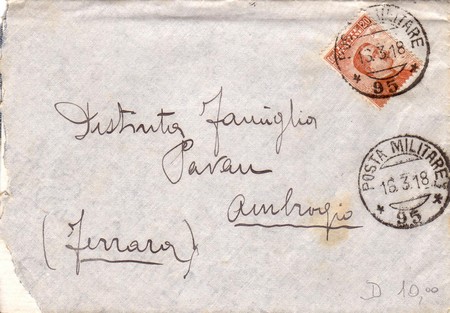 POSTA MILITARE
16.3.18
95
20
Distinta Famiglia
Pavan
Ambrogio
(Ferrara)
POSTA MILITARE
16.3.18
95
D 10,00